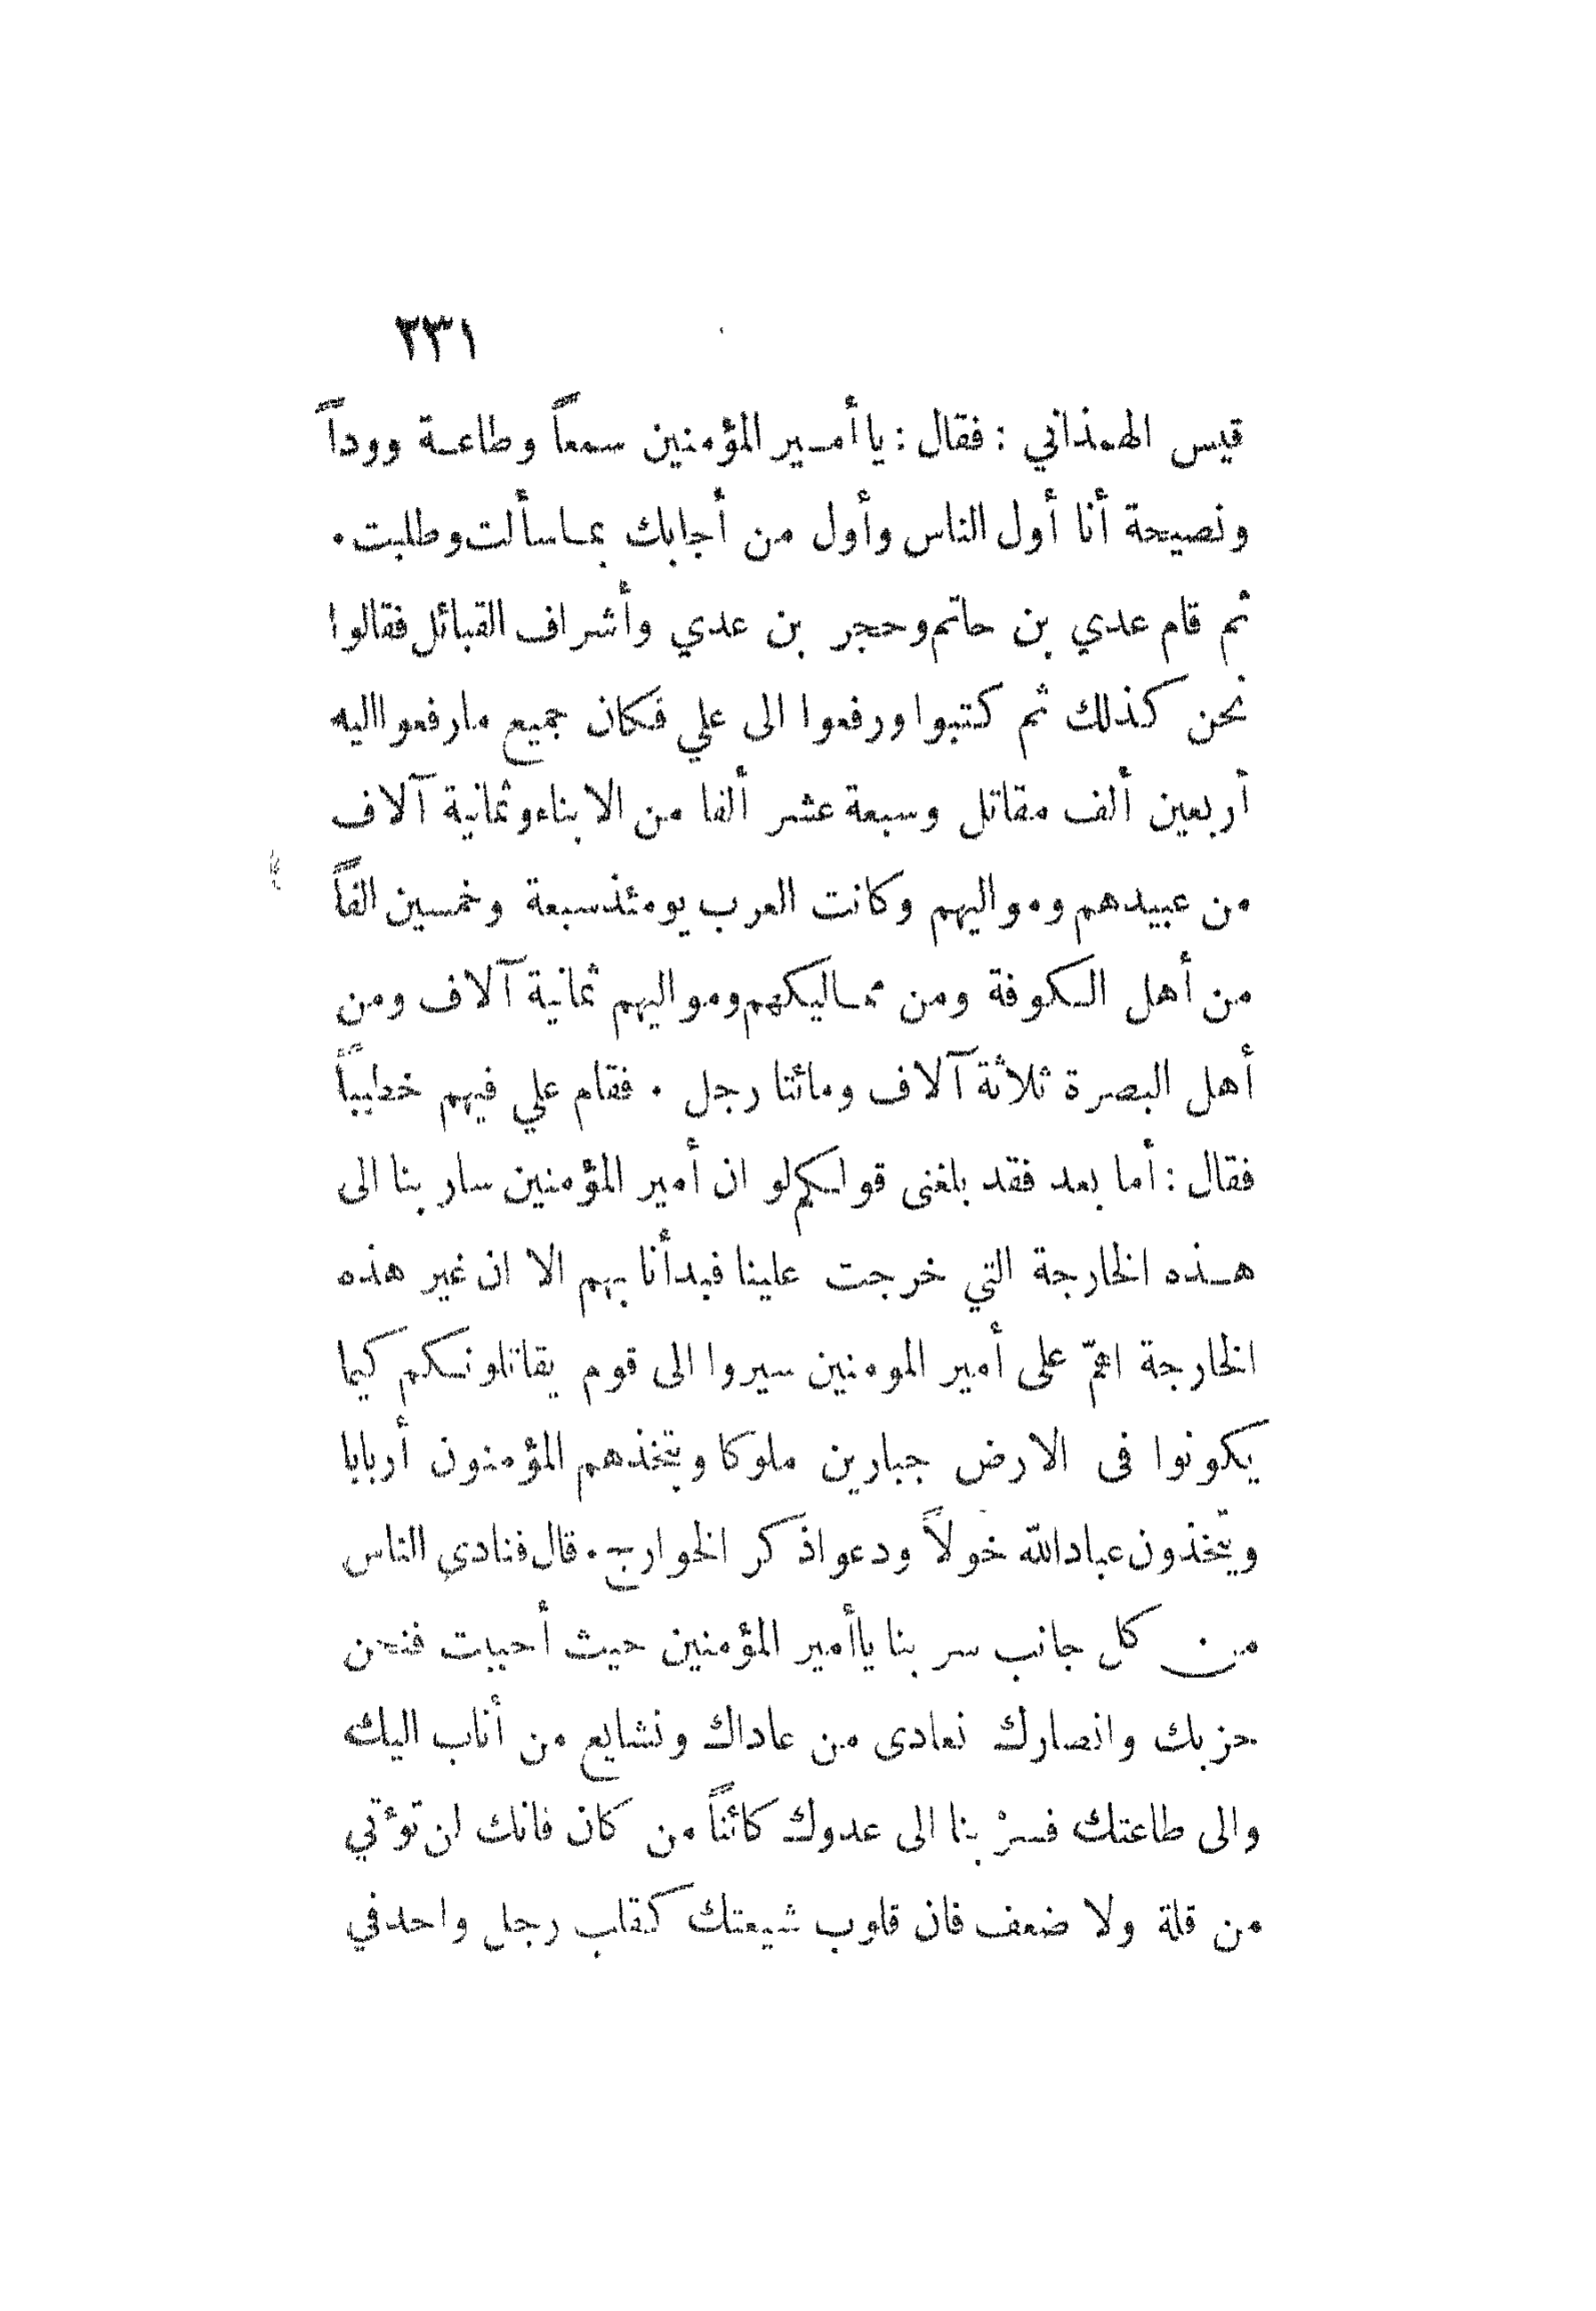 ٢٣١
قيس الهمذاني : فقال : يا أمير المؤمنين سمعاً وطاعة ووداً
ونصيحة أنا أول الناس وأول من أجابك بما سألت وطلبت .
ثم قام عدي بن حاتم وحجر بن عدي وأشراف القبائل فقالوا
نحن كذلك ثم كتبوا ورفعوا الى علي فكان جميع ما رفعوا اليه
أربعين ألف مقاتل وسبعة عشر ألفا من الابناء وثمانية آلاف
من عبيدهم ومواليهم وكانت العرب يومئذ سبعة وخمسين الفاً
من أهل الكوفة ومن مماليكهم ومواليهم ثمانية آلاف ومن
أهل البصرة ثلاثة آلاف ومائتا رجل . فقام علي فيهم خطيباً
فقال : أما بعد فقد بلغنى قولكم لو ان أمير المؤمنين سار بنا الى
هذه الخارجة التي خرجت علينا فبدأنا بهم الا ان غير هذه
الخارجة اهمّ على أمير المومنين سيروا الى قوم يقاتلونكم كيما
يكونوا فى الارض جبارين ملوكا ويتخذهم المؤمنون أربابا
ويتخذون عباد الله خولاً ودعوا ذكر الخوارج . قال فنادي الناس
من كل جانب سر بنا يا أمير المؤمنين حيث أحببت فنحن
حزبك وانصارك نعادى من عاداك ونشايع من أناب اليك
والى طاعتك فسرْ بنا الى عدوك كائناً من كان فانك لن تؤتي
من قلة ولا ضعف فان قلوب شيعتك كقلب رجل واحد في